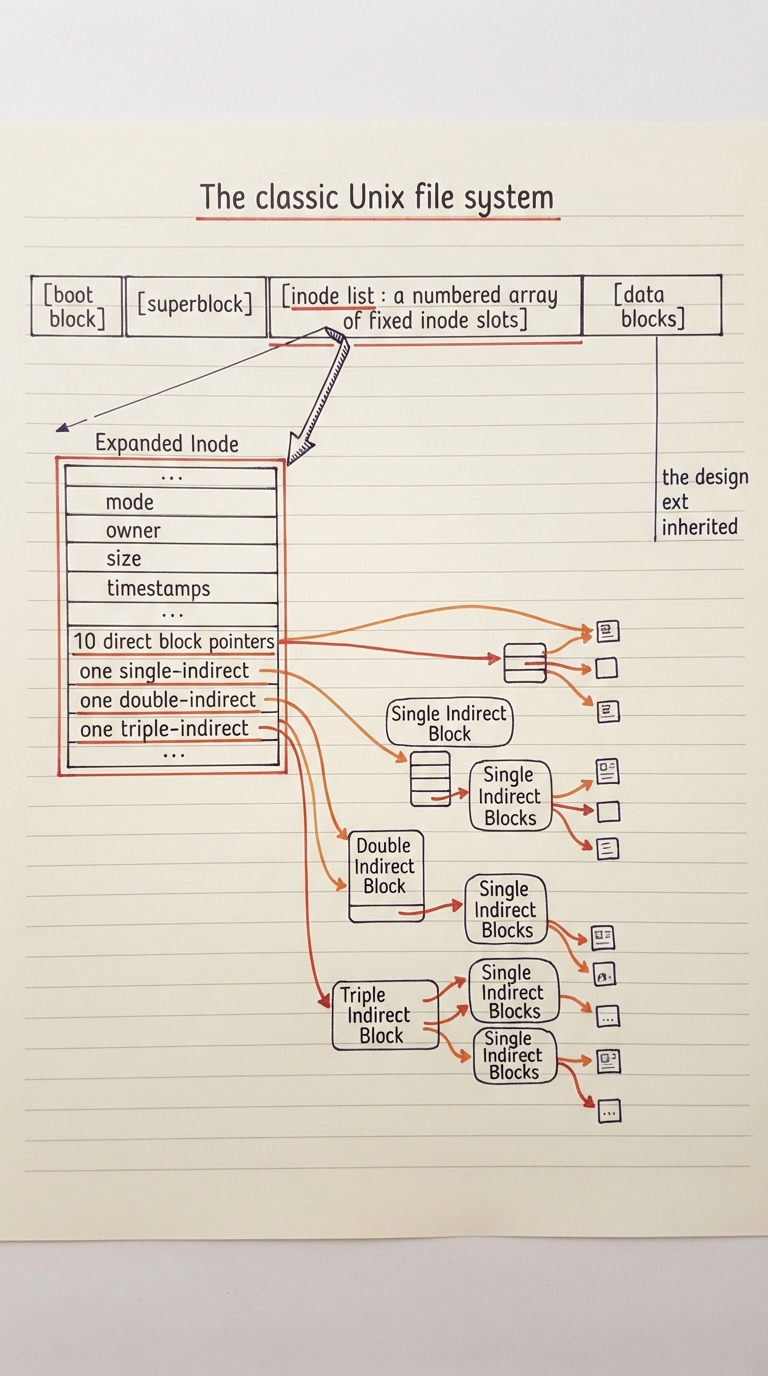 The classic Unix file system
[boot
block]
[superblock]
[inode list : a numbered array
of fixed inode slots]
[data
blocks]
the design
ext
inherited
Expanded Inode
...
mode
owner
size
timestamps
...
10 direct block pointers
one single-indirect
one double-indirect
one triple-indirect
...
Single Indirect
Block
Single
Indirect
Blocks
Double
Indirect
Block
Single
Indirect
Blocks
Triple
Indirect
Block
Single
Indirect
Blocks
...
Single
Indirect
Blocks
...